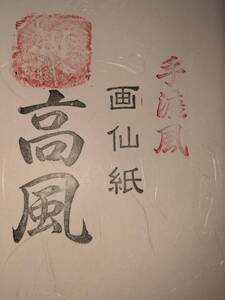 手漉風
画仙紙
高風